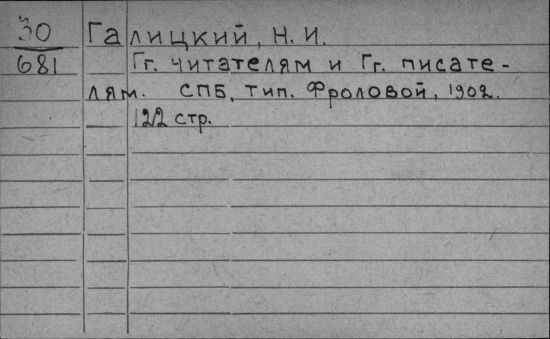 30
681
Галицкий, Н. И.
Гг. читателям и Гг. писате-
лям. СПБ, тип. Фроловой, 1902.
122 стр.